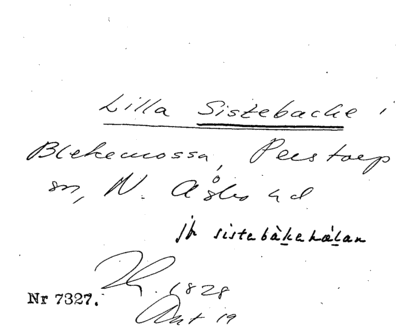 Lilla Sistebacke i
Blekemossa, Perstorp
sn, N. Åsbo hd
jfr sistebàkehálan
1828
Nr 7327.